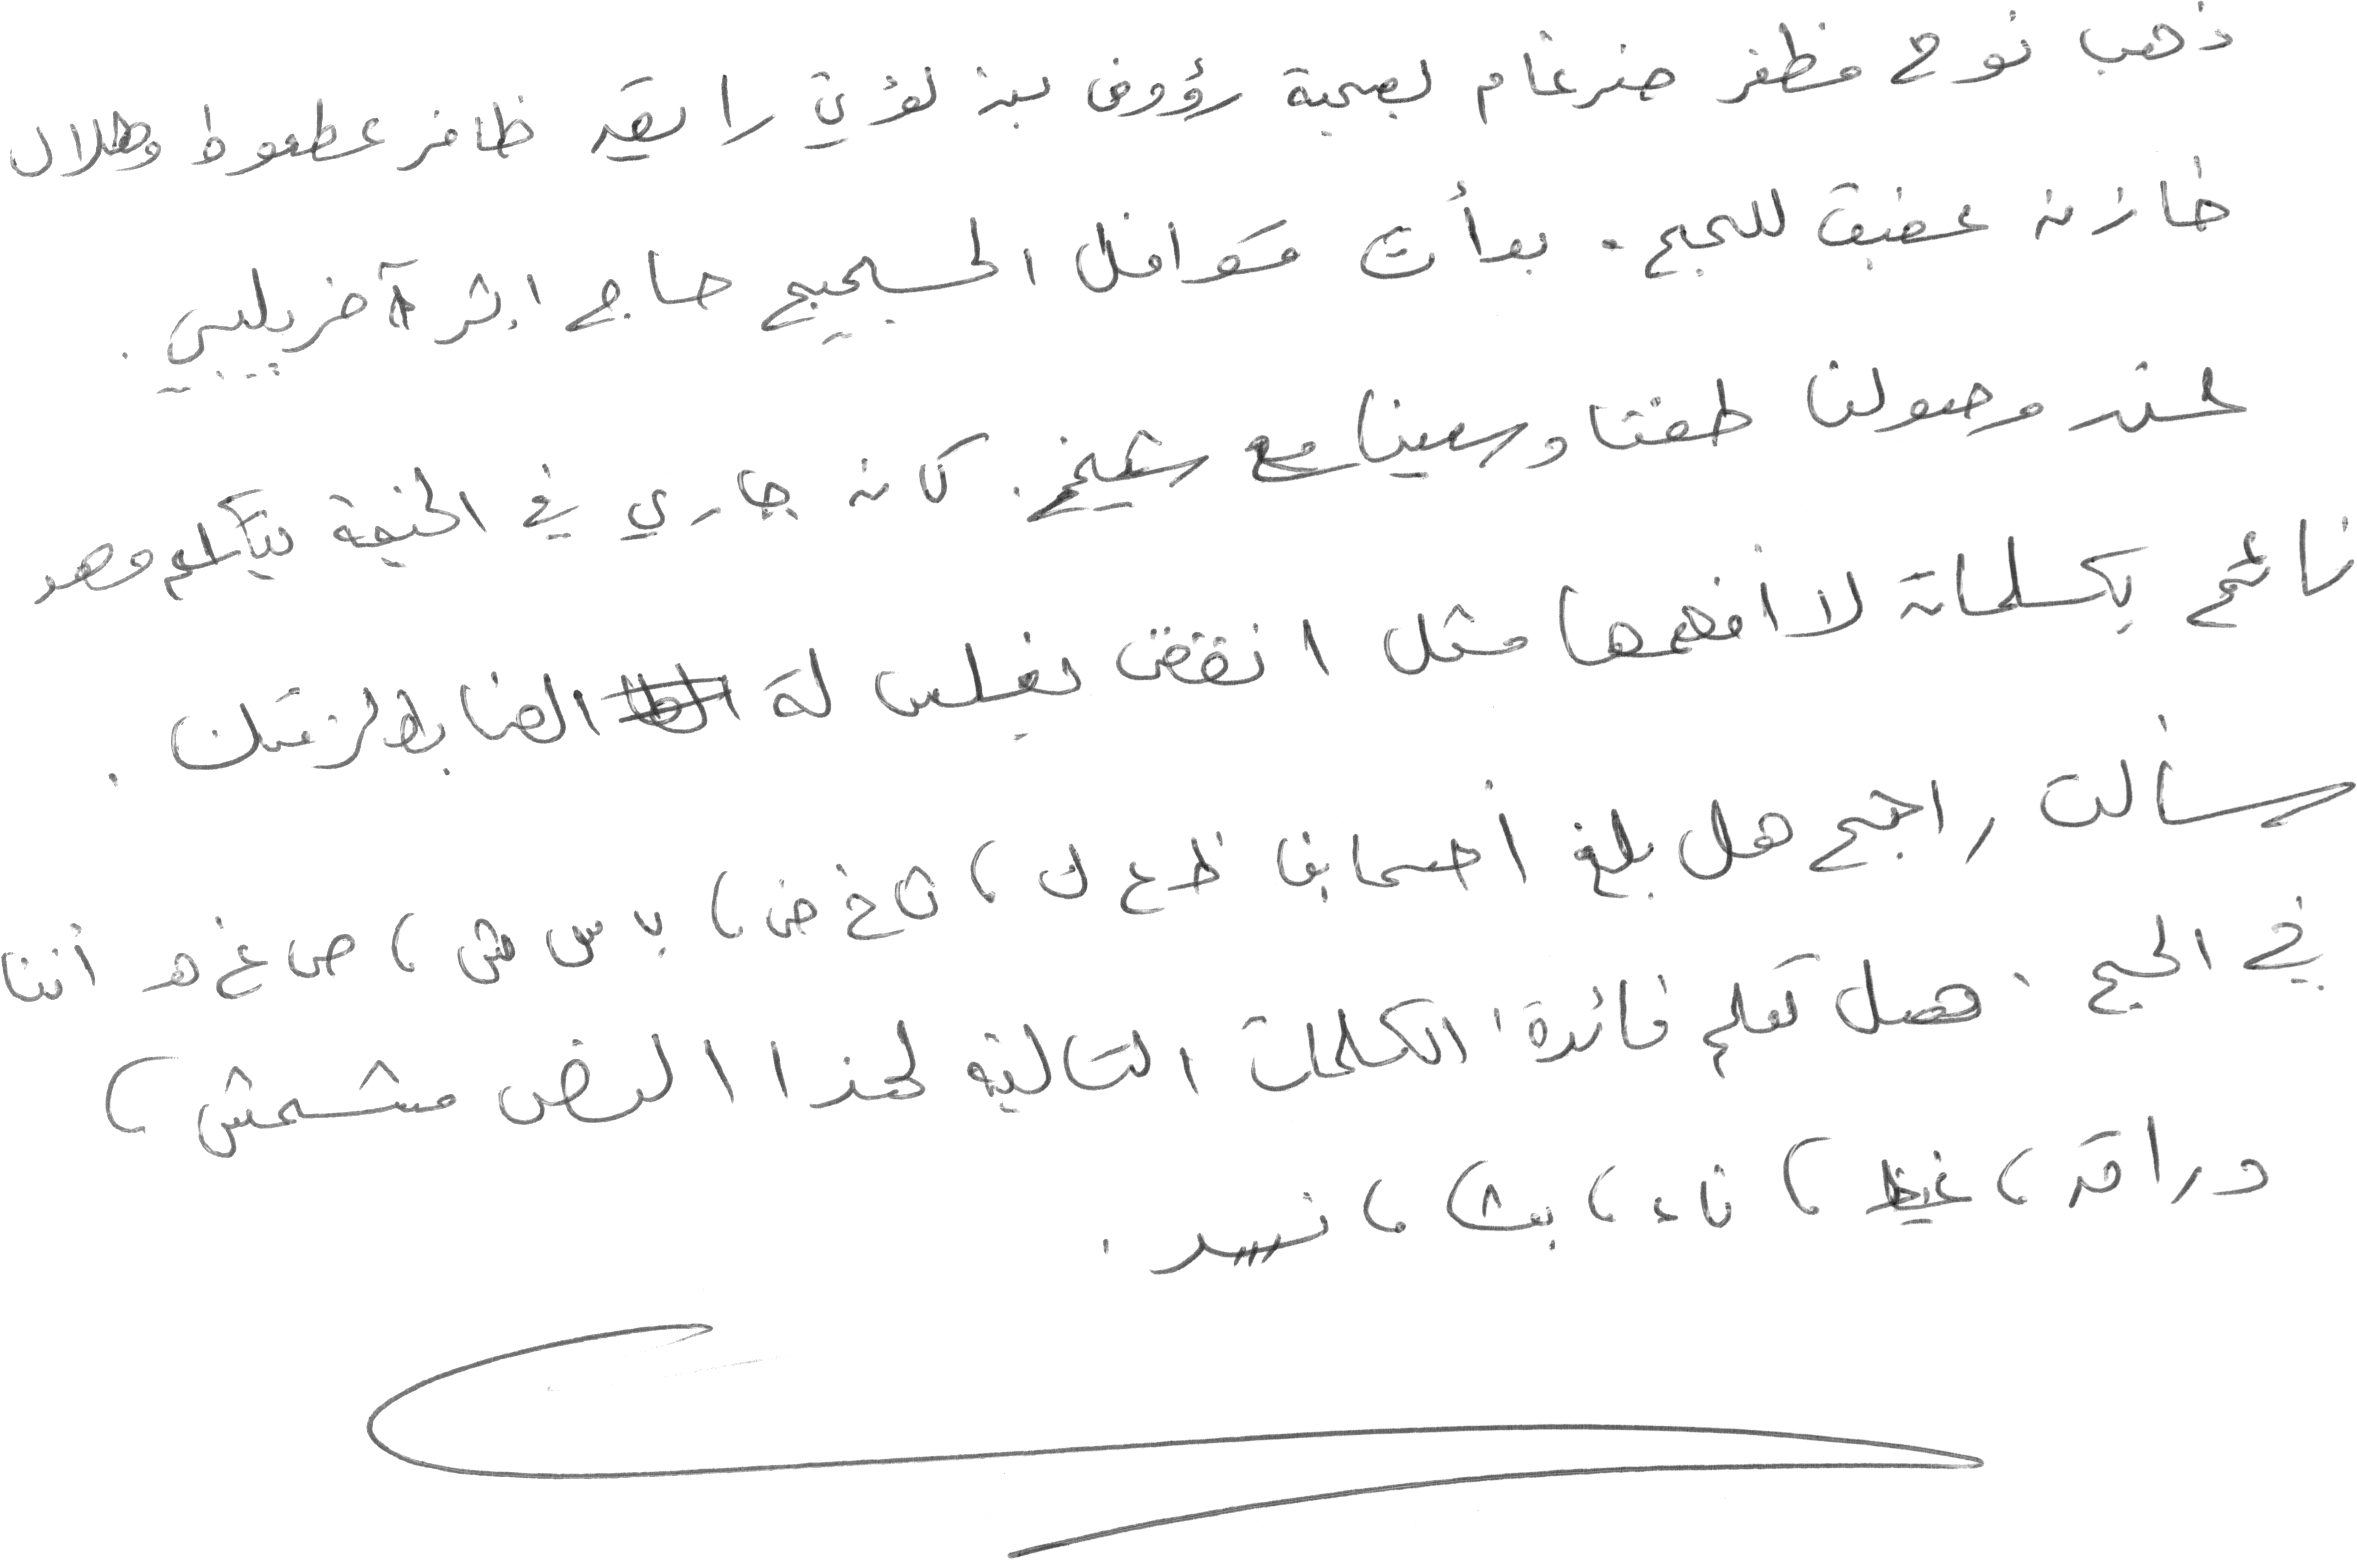 ذهب نوح مظفر ضرغام بصحبة رؤوف بن لؤي رايقه ظافر عطعوط وهلال
خازن عفيف للحج. بدأت قوافل الحجيج حاج اثر آخر يلبي.
عند وصولنا طفنا وسعينا مع شيخ. كان جاري في الخيمة يتكلم وهو
نائم بكلمات لا افهمها مثل انقض نفيس له الضابط لزقتك.
سألت راجح هل بلغ أصحابنا ظ ع ك، ث خ ض، ب س ش، ص غ هـ أننا
في الحج. هل تعلم فائدة الكلمات التالية لهذا النص مشمش،
دراق، غيظ، تاء، بث، نهر.